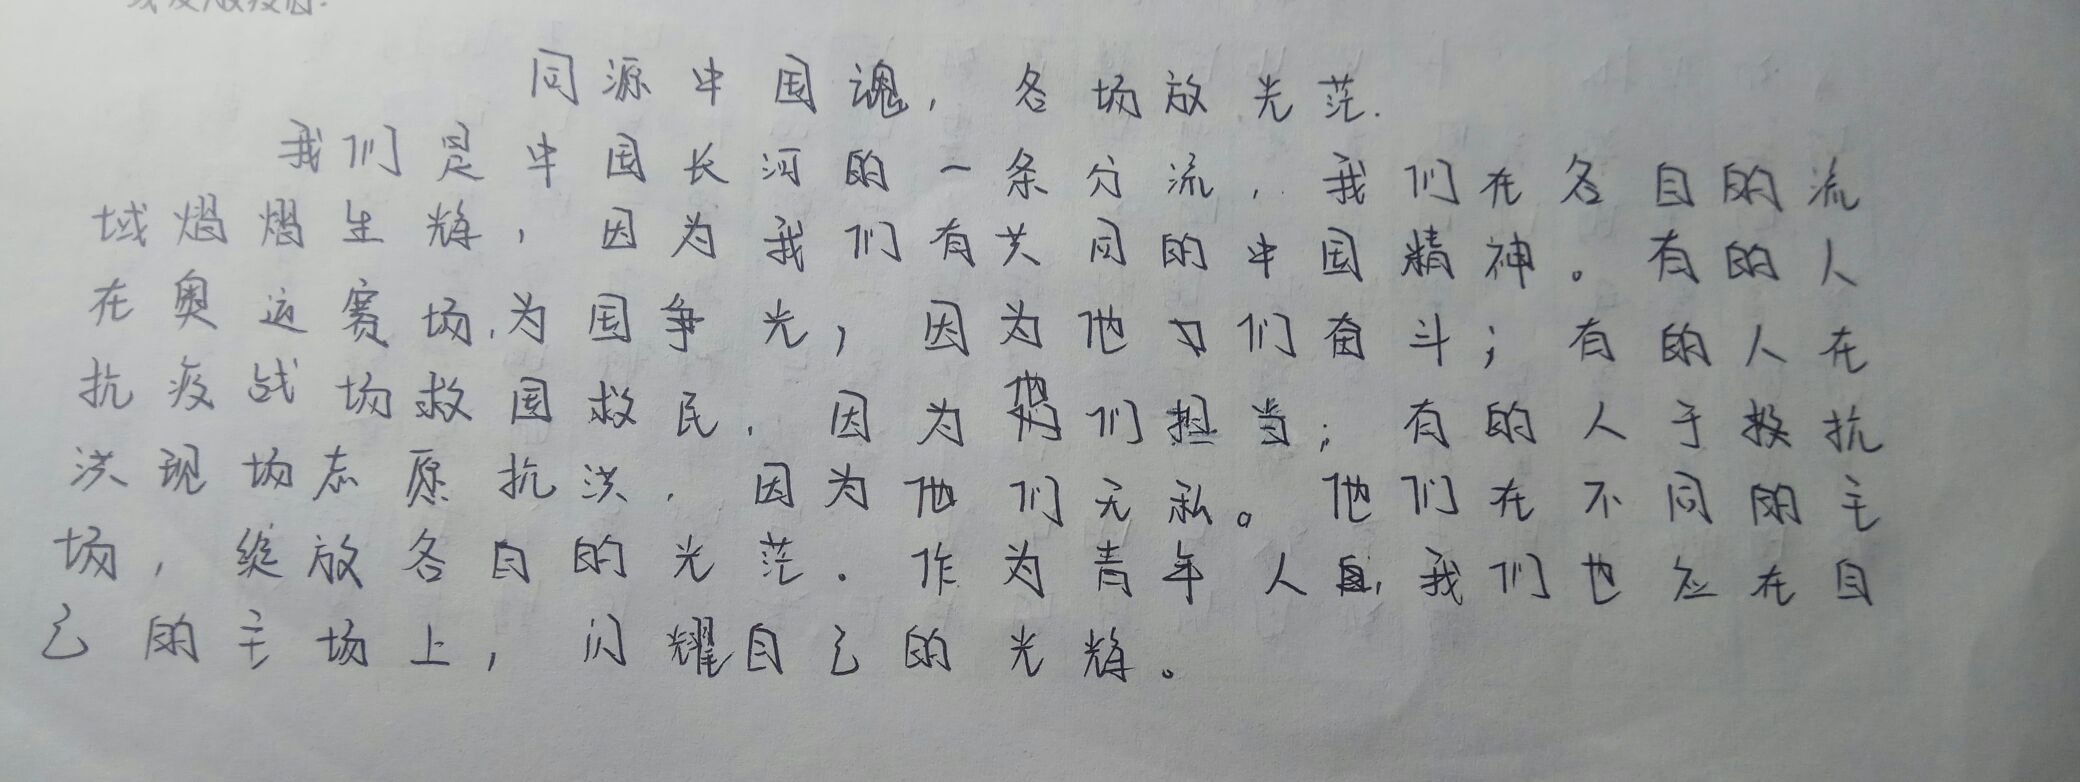 同源中国魂，各场放光茫.
我们是中国长河的一条分流，我们在各自的流
域熠熠生辉，因为我们有共同的中国精神。有的人
在奥运赛场,为国争光，因为他们奋斗；有的人在
抗疫战场救国救民，因为他们担当；有的人于投抗
洪现场志愿抗洪，因为他们无私。他们在不同的主
场，绽放各自的光茫.作为青年人,我们也应在自
己的主场上，闪耀自己的光辉。